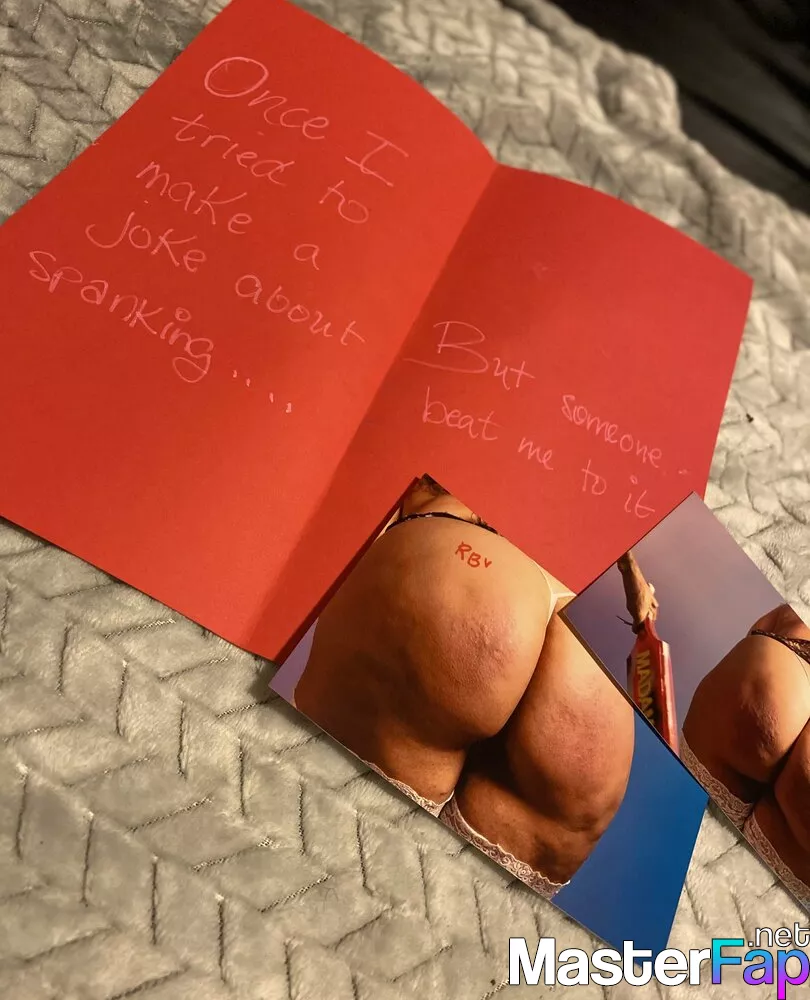 Once I
tried to
make a
joke about
spanking....
But someone..
beat me to it
RBV
MADAM
MasterFap
.net